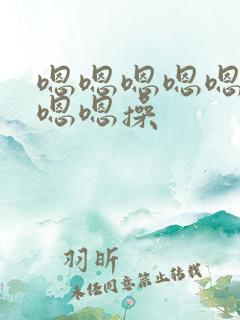 嗯嗯嗯嗯嗯
嗯嗯操
羽昕
未经同意禁止转载